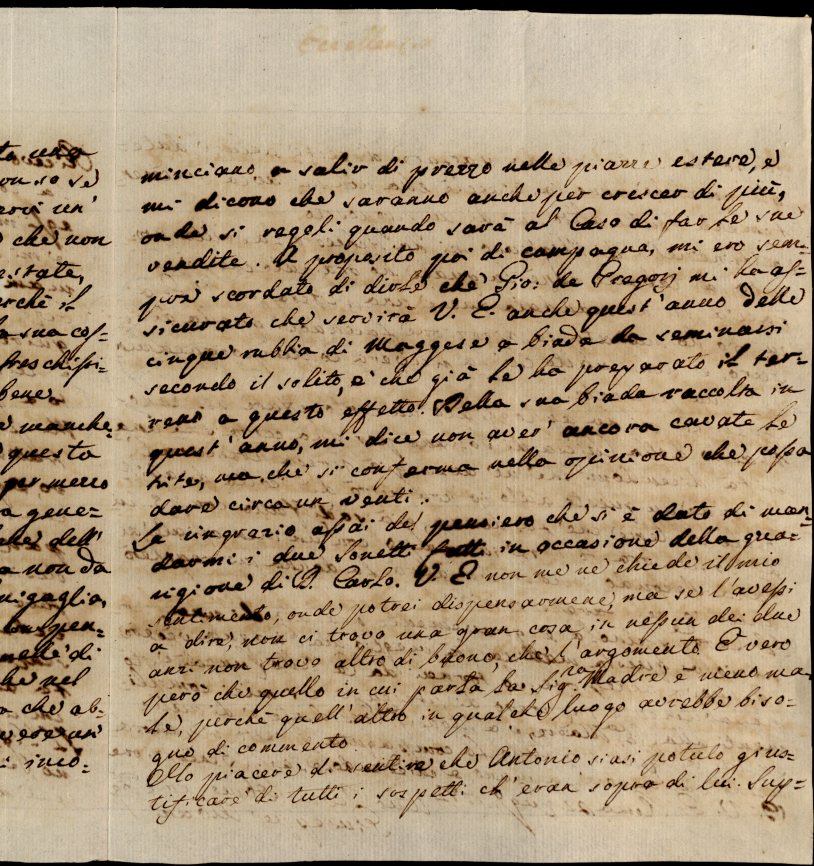 Eccellenza
ta una
on so se
erei un'
che non
estate,
erchè il
la sua cos=
freschissi=
bene.
manche=
questa
per mezzo
a gene=
che dell'
a non da
nigaglia,
pen=
di
he nel
a che ab=
vere un
inco=
minciano a salir di prezzo nelle piazze estere, e
mi dicono che saranno anche per crescer di più,
onde si regoli quando sarà al caso di far le sue
vendite. A proposito poi di campagna, mi ero sem=
pre scordato di dirle che Gio: de Gregorj mi ha as=
sicurato che servirà V. E. anche quest'anno delle
cinque rubbia di Maggese a biada da seminarsi
secondo il solito, e che già le ha preparato il ter=
reno a questo effetto. Della sua biada raccolta in
quest'anno, mi dice non aver' ancora cavate le
trite, ma che si conferma nella opinione che possa
dare circa un venti.
La ringrazio assai del pensiero che si è dato di man=
darmi i due Sonetti fatti in occasione della gua=
rigione di D. Carlo. V. E. non me ne chiede il mio
sentimento, onde potrei dispensarmene, ma se l'avessi
a dire, non ci trovo una gran cosa in nessun dei due
anzi non trovo altro di buono, che l'argomento. È vero
però che quello in cui parla la Sig.ra Madre è meno ma=
le, perchè quell'altro in qualche luogo avrebbe biso=
gno di commento.
Ho piacere di sentire che Antonio siasi potuto gius=
tificare di tutti i sospetti ch'eran sopra di lui. Sup=